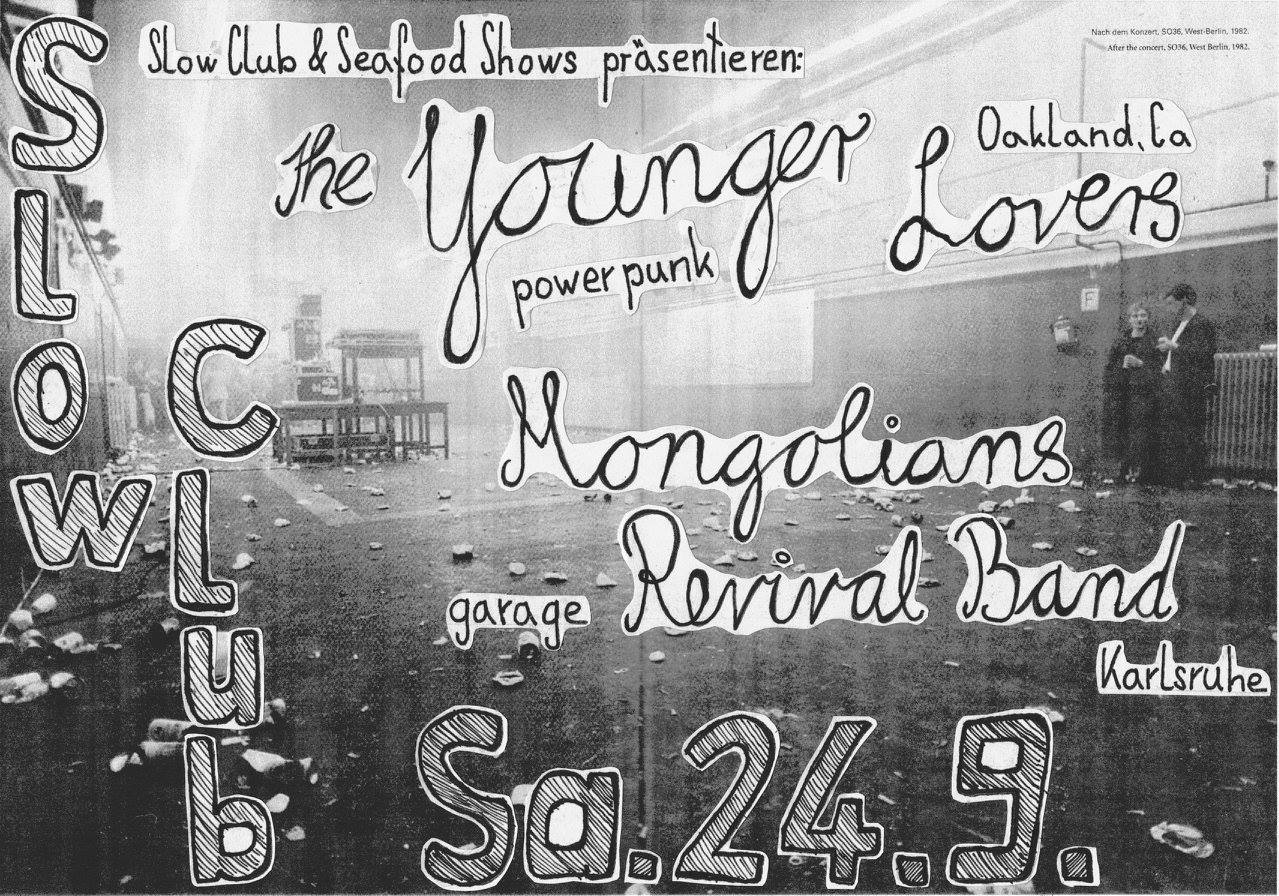 Slow Club & Seafood Shows präsentieren:
Nach dem Konzert, SO36, West-Berlin, 1982.
After the concert, SO36, West Berlin, 1982.
The Younger Lovers
Oakland, Ca
power punk
Mongolians
Revival Band
garage
Karlsruhe
Slow
Club
Sa. 24.9.